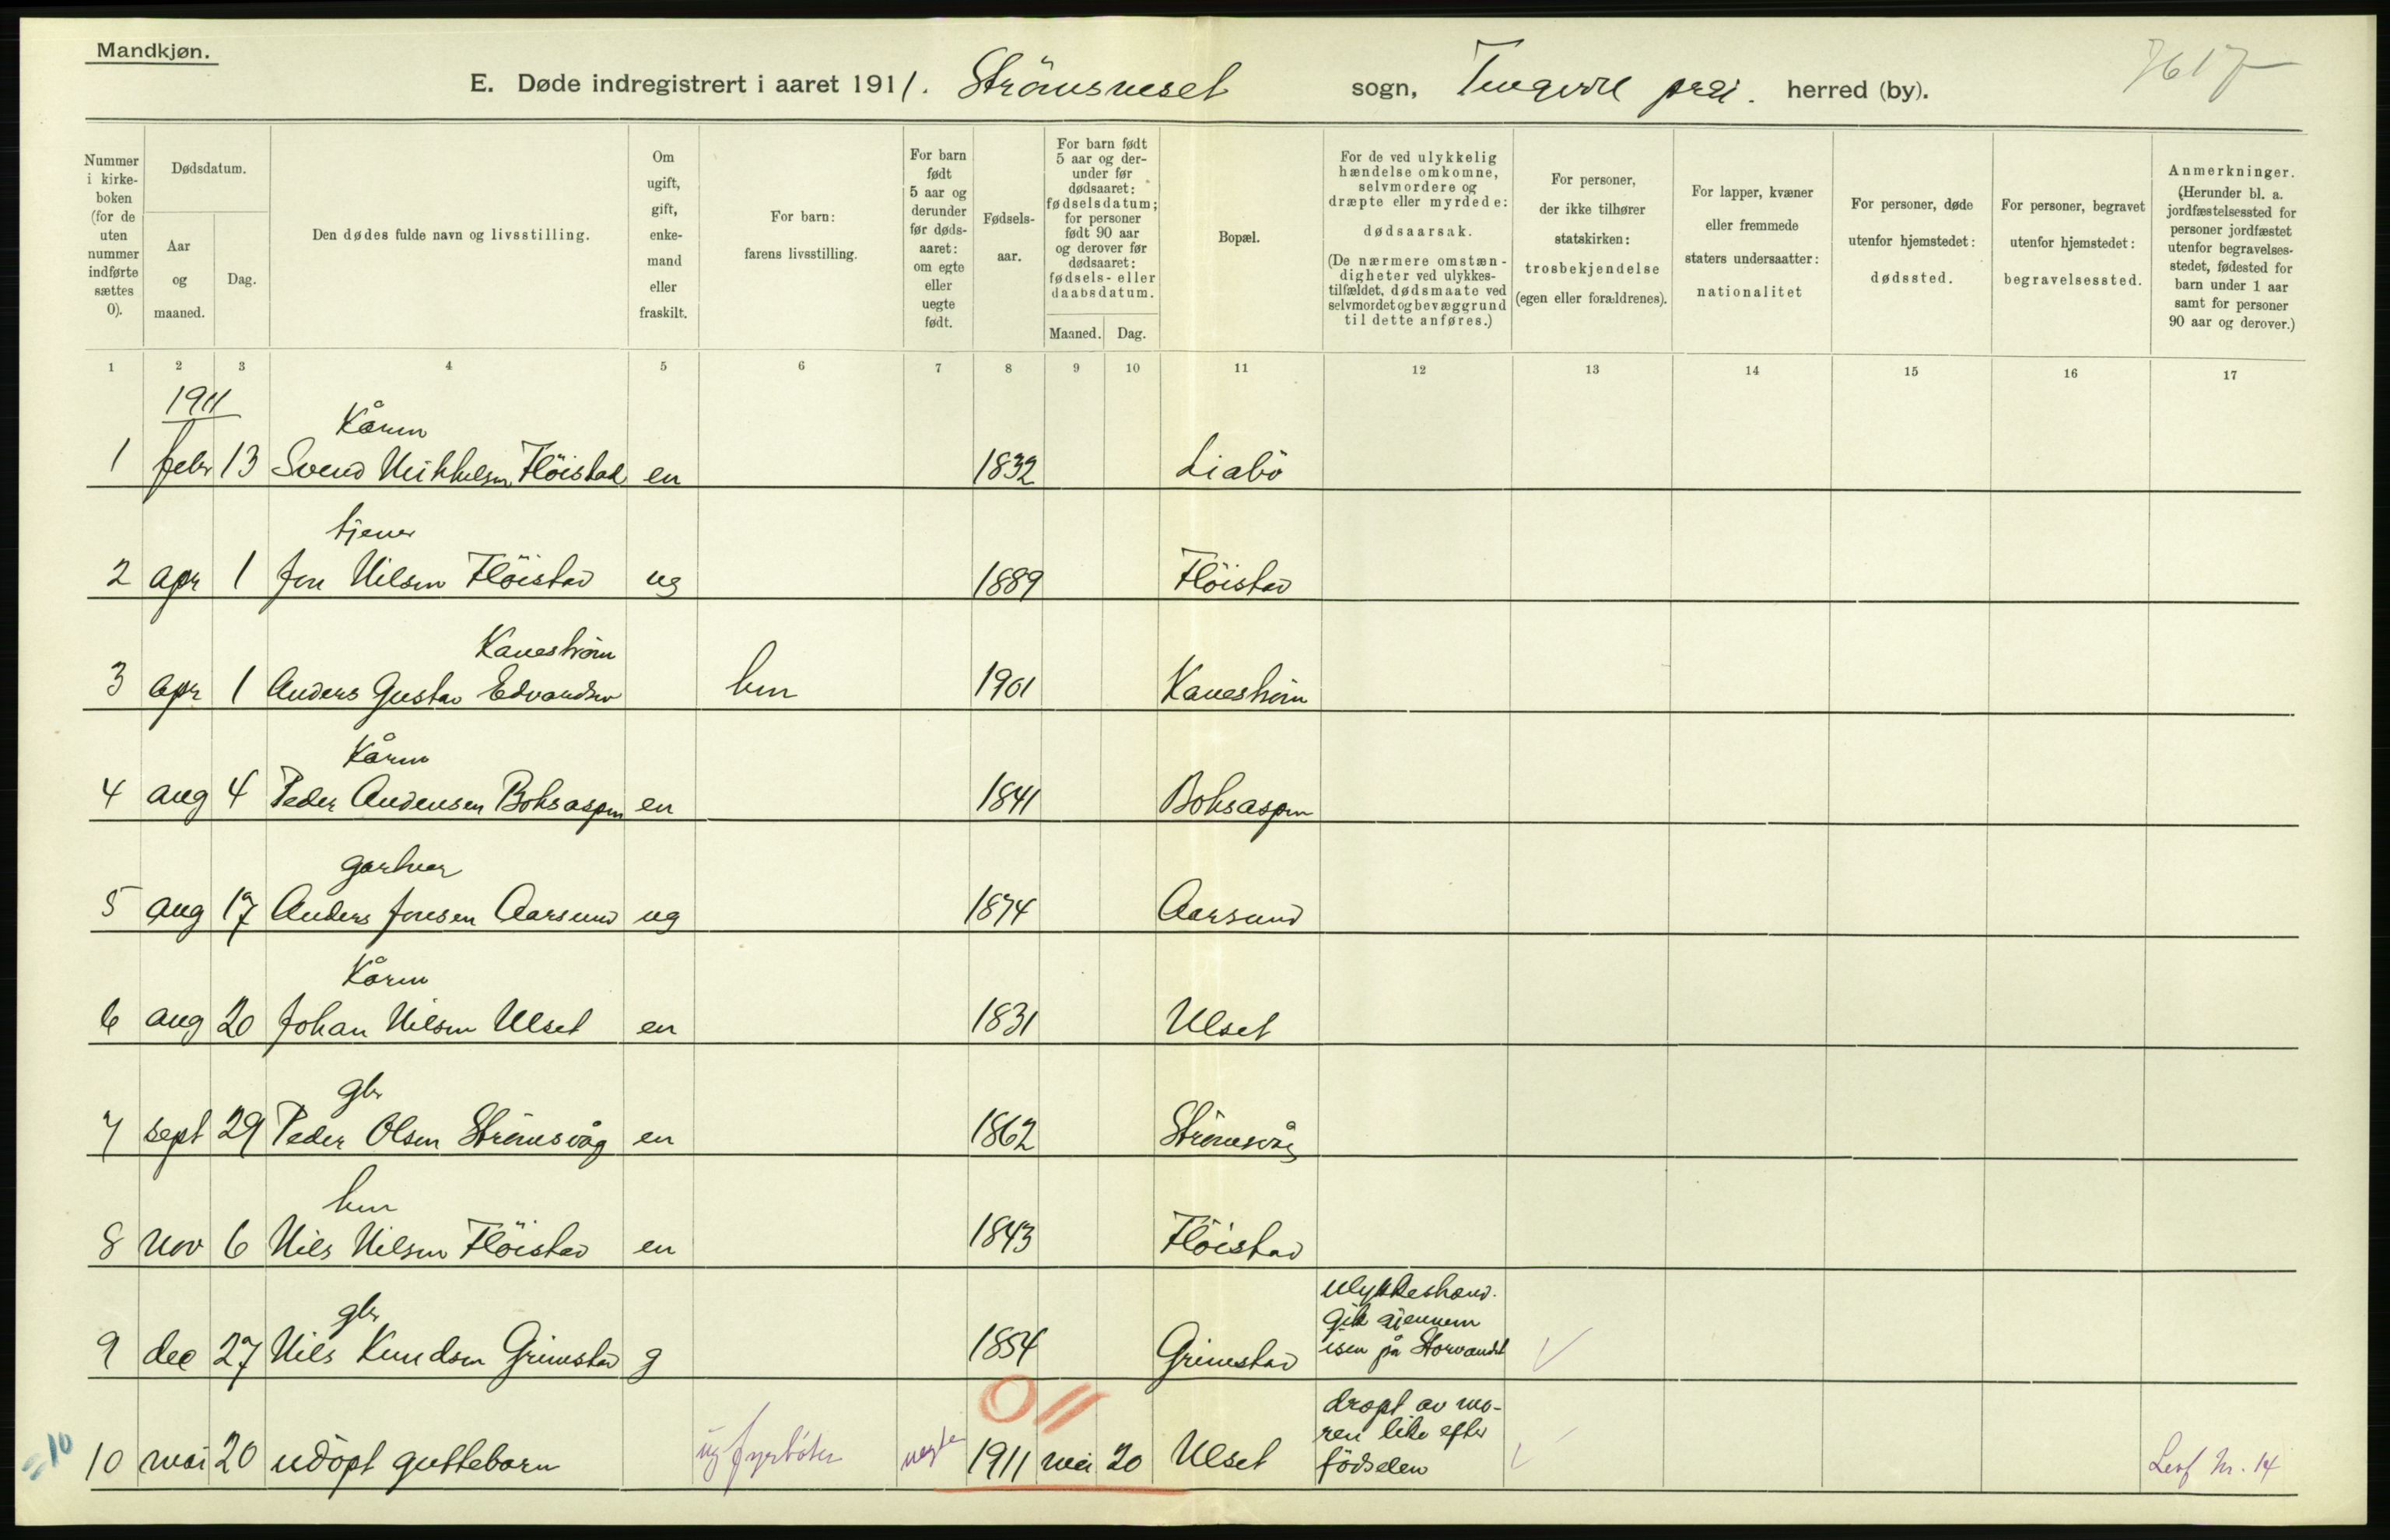 Mandkjøn.
E. Døde indregistrert i aaret 1911. Strömsneset sogn, Tingvoll præ. herred (by).
7617
Nummer i kirkeboken (for de uten nummer indførte sættes 0).
Dødsdatum.
Aar og maaned.
Dag.
Den dødes fulde navn og livsstilling.
Om ugift, gift, enkemand eller fraskilt.
For barn: farens livsstilling.
For barn født 5 aar og derunder før dødsaaret: om egte eller uegte født.
Fødselsaar.
For barn født 5 aar og derunder før dødsaaret: fødselsdatum; for personer født 90 aar og derover før dødsaaret: fødsels- eller daabsdatum.
Maaned. Dag.
Bopæl.
For de ved ulykkelig hændelse omkomne, selvmordere og dræpte eller myrdede: dødsaarsak.
(De nærmere omstændigheter ved ulykkestilfældet, dødsmaate ved selvmordet og bevæggrund til dette anføres.)
For personer, der ikke tilhører statskirken: trosbekjendelse (egen eller forældrenes).
For lapper, kvæner eller fremmede staters undersaatter: nationalitet
For personer, døde utenfor hjemstedet: dødssted.
For personer, begravet utenfor hjemstedet: begravelsessted.
Anmerkninger.
(Herunder bl. a. jordfæstelsessted for personer jordfæstet utenfor begravelsesstedet, fødested for barn under 1 aar samt for personer 90 aar og derover.)
1 2 3 4 5 6 7 8 9 10 11 12 13 14 15 16 17
1911
Kårm
1 febr 13 Svend Mikkelsen Flöistad em 1832 Liabö
tjener
2 apr 1 Jon Nilsen Flöistad ug 1889 Flöistad
Kaneström
3 apr 1 Anders Gustav Edvardsen hm 1901 Kaneström
Kårm
4 aug 4 Peder Andersen Boksaspen em 1841 Boksaspen
gartner
5 aug 17 Anders Jonsen Aarsund ug 1874 Aarsund
Kårm
6 aug 20 Johan Nilsen Ulset em 1831 Ulset
gbr
7 sept 29 Peder Olsen Strömsvåg em 1862 Strömsvåg
hm
8 nov 6 Nils Nilsen Flöistad em 1843 Flöistad
ulykkeshænd.
gbr gik gjennem
9 dec 27 Nils Knudsen Grimstad g 1854 Grimstad isen på Storvandet
0 11
dræpt av mo-
ren like efter
10 10 mai 20 udöpt guttebarn ug fyrböter uegte 1911 mai 20 Ulset födselen Levf Nr. 14